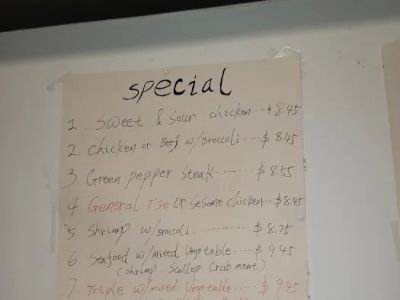 Special
1. Sweet & Sour chicken --- $8.45
2. Chicken or Beef w/Broccoli ---- $8.45
3. Green pepper steak ------- $8.55
4 General T'so or Sesame chicken -- $8.45
5 Shrimp w/Broccoli ---- $8.75
6. Seafood w/mixed vegetable ---- $9.45
(shrimp Scallop Crab meat)
7. Triple w/mixed vegetable ---- $9.45